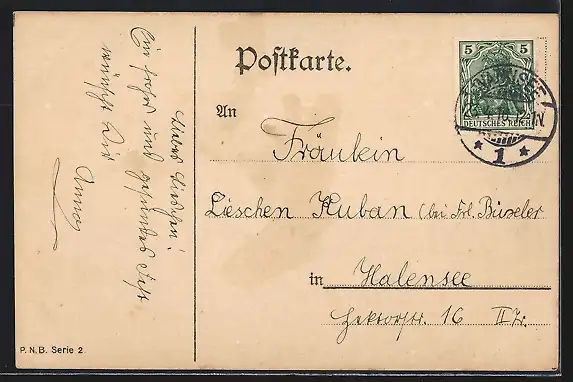 Liebes Lieschen!
Ein frohes und gesundes Fest
wünscht Dir
Anna
Postkarte.
5 5
DEUTSCHES REICH
WANNSEE
* 1 *
An
Fräulein
Lieschen Kuban (bei Frl. Büseler
in Halensee
Hektorstr. 16 II Tr.
P.N.B. Serie 2.